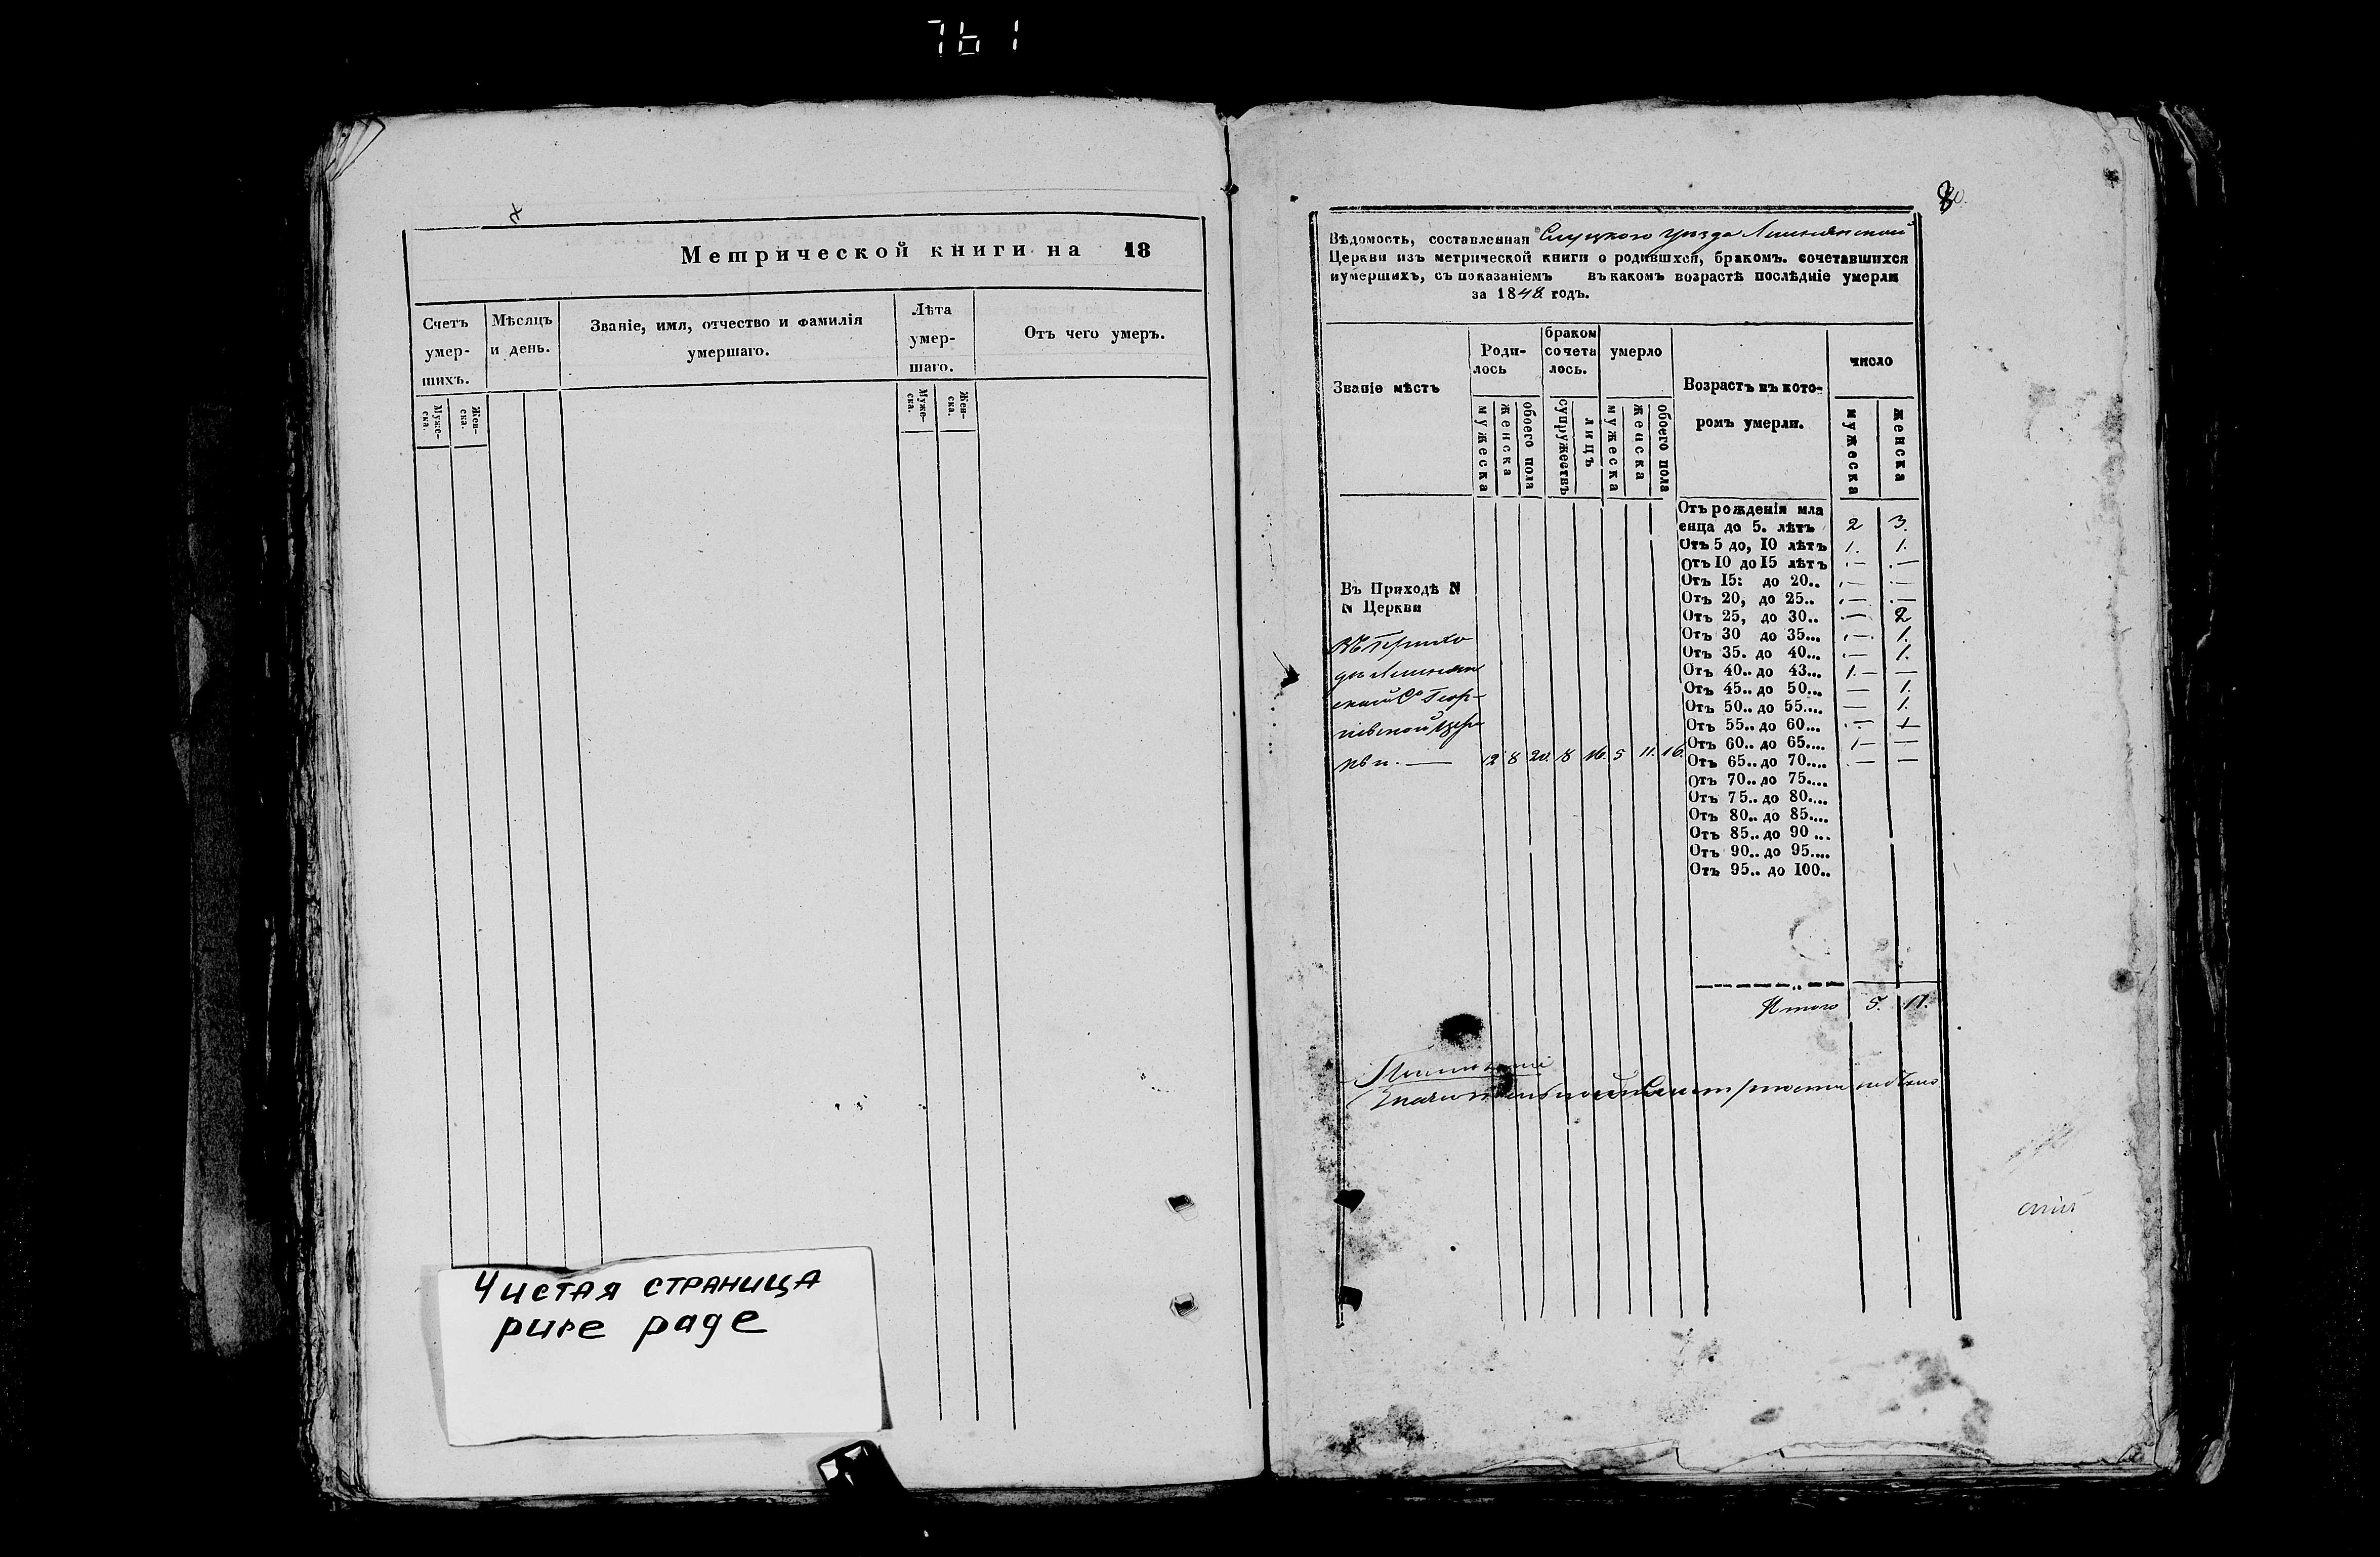 761
Метрической книги на 18
Счетъ умер-шихъ.
Мѣсяцъ и день.
Званіе, имя, отчество и фамилія умершаго.
Лѣта умер-шаго.
Отъ чего умеръ.
Муже-ска.
Жен-ска.
Муже-ска.
Жен-ска.
Чистая страница
pure page
80.
Вѣдомость, составленная Слуцкого уѣзда
Церкви изъ метрической книги о родившхся, бракомъ. сочетавшихся
иумершихъ, съ показаніемъ въ какомъ возрастѣ послѣдніе умерли
за 1848 годъ.
Званіе мѣстъ
Роди-лось
браком сочета лось.
умерло
Возрастъ въ кото-ромъ умерли.
число
мужеска
женска
обоего пола
супружествъ
лицъ
мужеска
женска
обоего пола
мужеска
женска
Отъ рожденія мла
енца до 5. лѣтъ 2 3.
Отъ 5 до, 10 лѣтъ 1. 1.
Отъ 10 до 15 лѣтъ — —
Отъ 15: до 20.. — —
Отъ 20, до 25.. — —
Отъ 25, до 30.. — 2
Отъ 30 до 35... — 1.
Отъ 35. до 40... — 1.
Отъ 40.. до 43... 1. —
Отъ 45.. до 50... — 1.
Отъ 50.. до 55.... — 1.
Отъ 55.. до 60...
Отъ 60.. до 65.... 1 —
Отъ 65.. до 70.... — —
Отъ 70.. до 75....
Отъ 75.. до 80....
Отъ 80.. до 85....
Отъ 85.. до 90 ...
Отъ 90.. до 95....
Отъ 95.. до 100..
Въ Приходѣ N
N Церкви
въ Прихо
гіевской Цер
кви. — 12 8 20. 8 16. 5 11. 16.
Итого 5. 11.